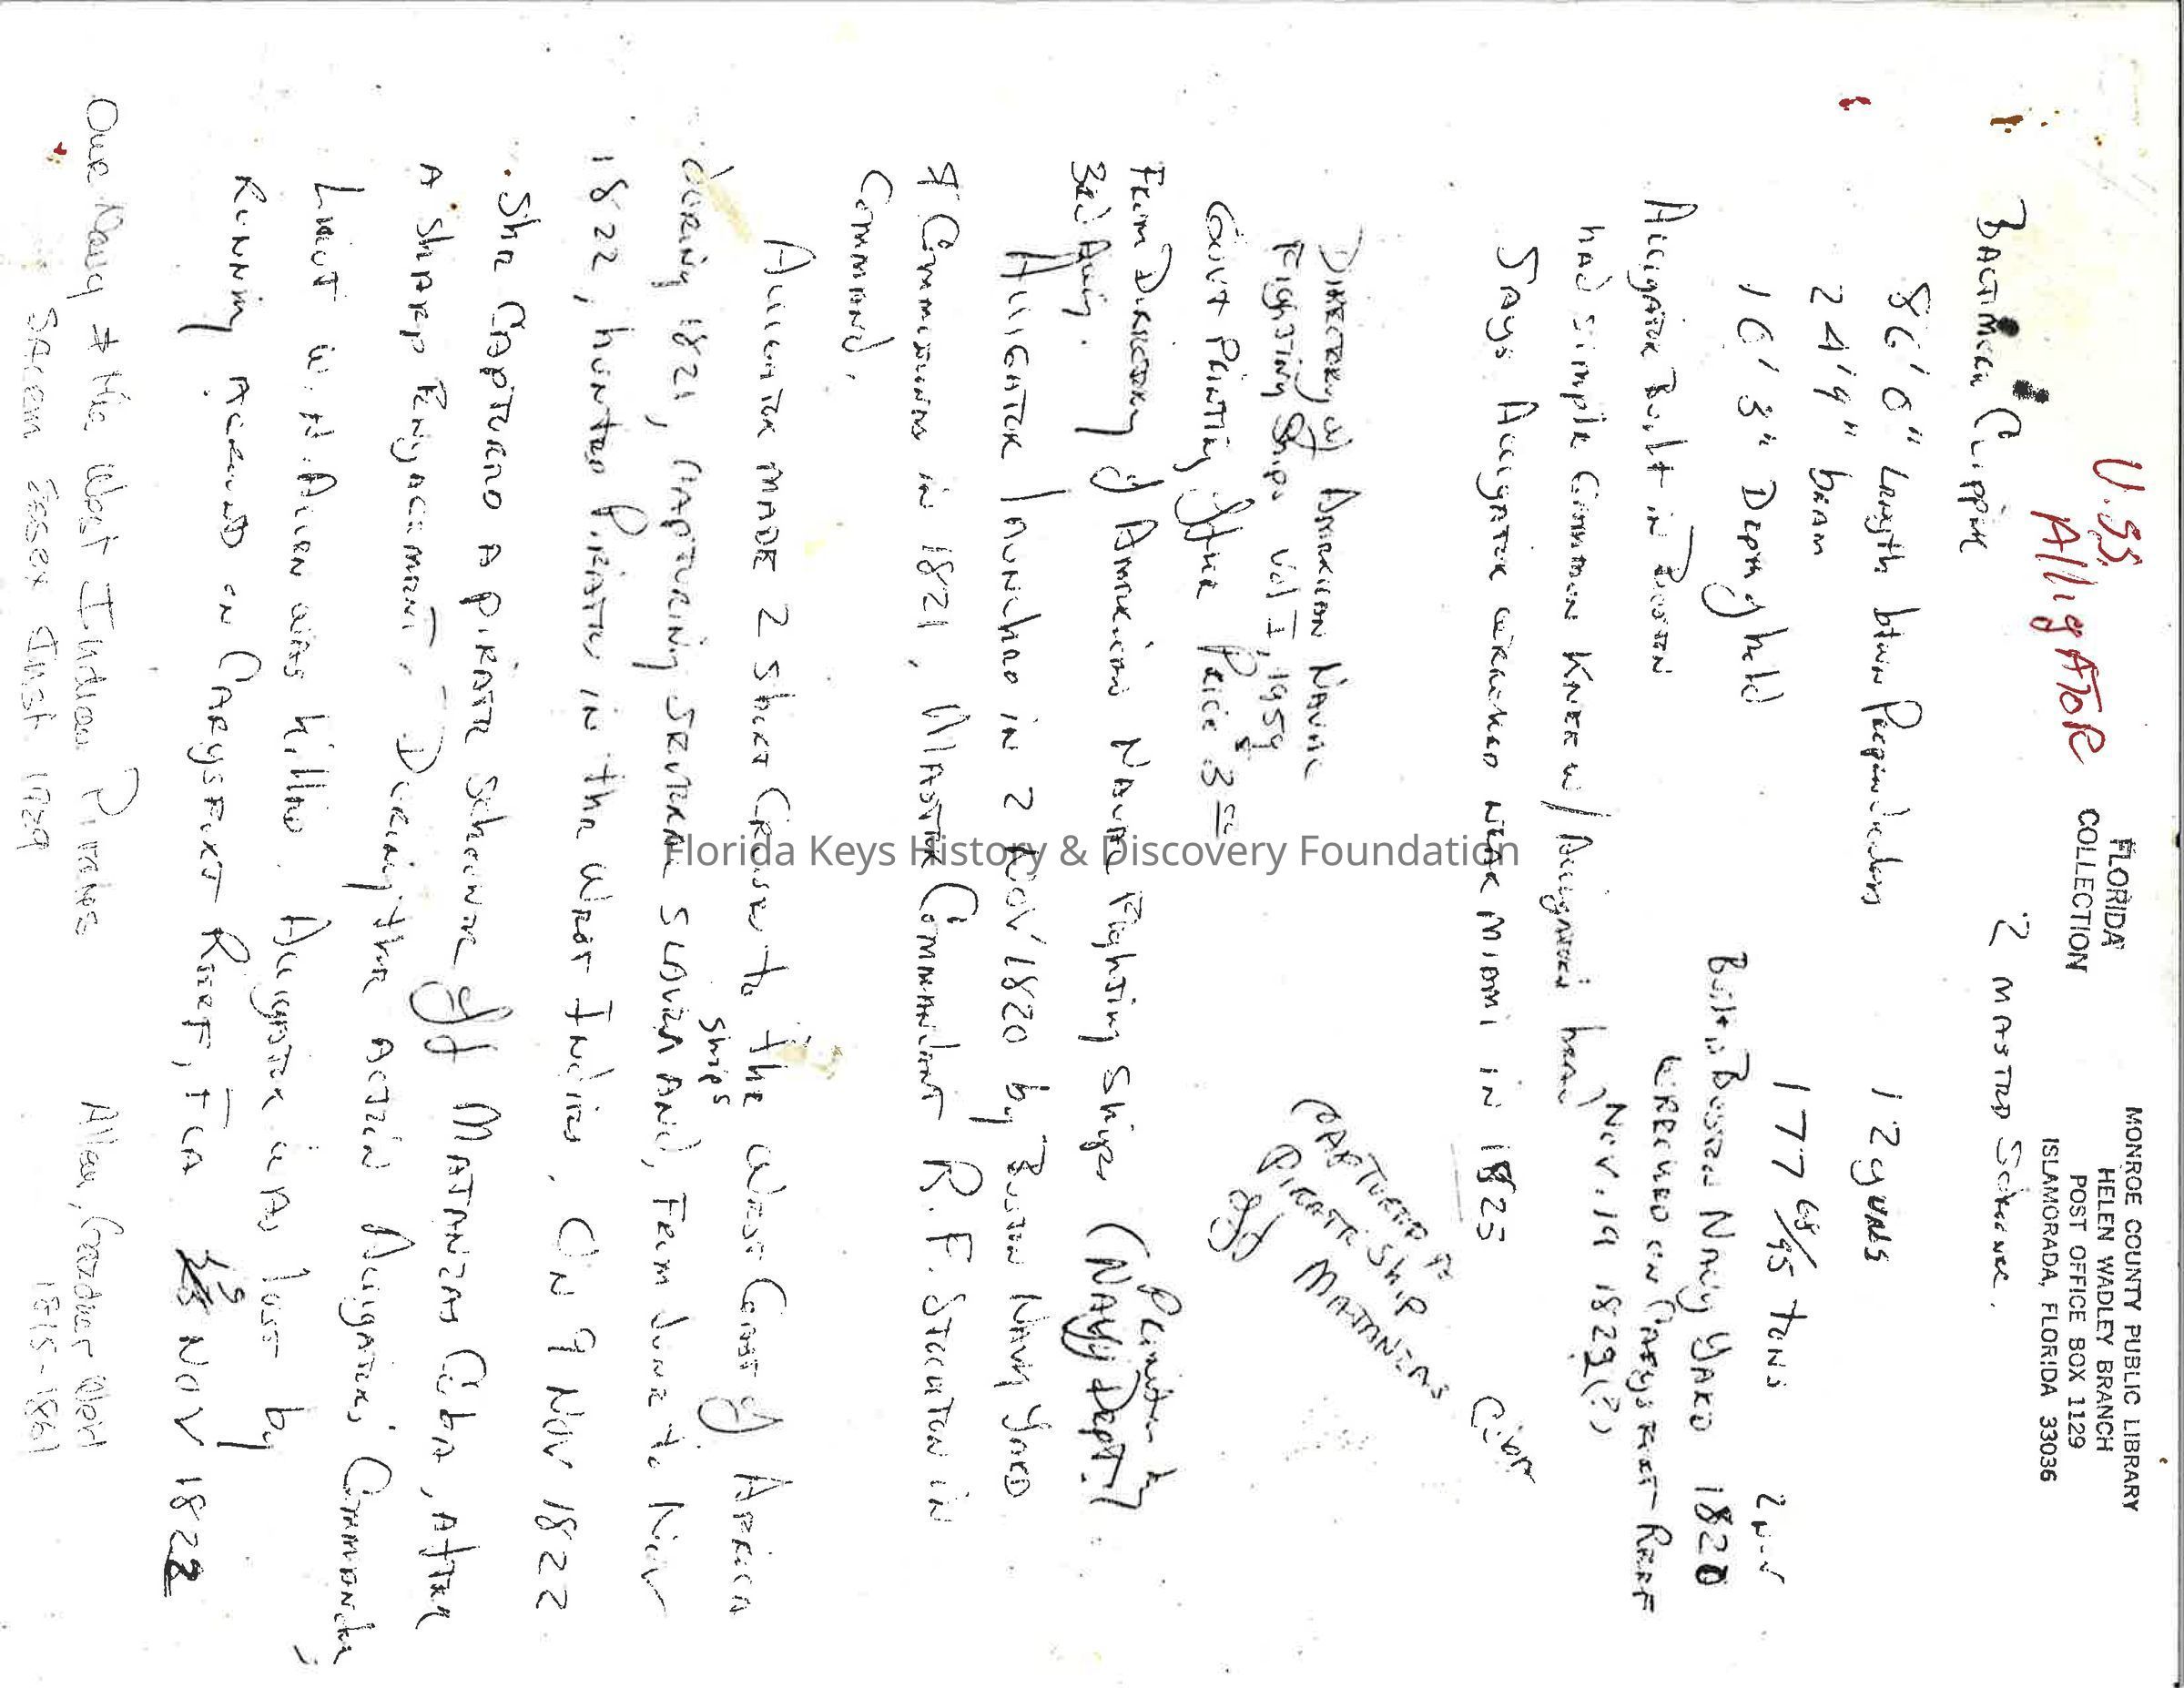 U.SS.
AlligATOR
FLORIDA
COLLECTION
MONROE COUNTY PUBLIC LIBRARY
HELEN WADLEY BRANCH
POST OFFICE BOX 1129
ISLAMORADA, FLORIDA 33036
BALTIMORE CLIPPER
2 MASTED Schooner.
86'0" Length btwn Perpendiculars
12 guns
24'9" beam
177 68/95 tons
10'3" Depth of hold
2 Nov
Built in Boston Navy YARD 1820
Alligator Built in Boston
WRECKED on CARYSFORT REEF
had simple Common Knee w/ Alligators head
Nov. 19 1823(?)
Says Alligator WRECKED NEAR MIAMI IN 1825
DIRECTORY of AMERICAN NAVAL
Fighting Ships Vol I, 1959
Gov't Printing Office Price $3
CAPTURED a
PIRATE SHIP
off MATANZAS
From Directory of American NAVAL Fighting Ships (NAVY Dept.)
Printed by
ALLIGATOR launched in 2 NOV 1820 by Boston NAVY YARD
& Commissioned in 1821, MASTER COMMANDANT R. F. STOCKTON in
Command.
ALLIGATOR MADE 2 short CRUISES to the WEST COAST of AFRICA
during 1821, CAPTURING SEVERAL SLAVERS AND, From June to Nov
ships
1822, hunted PIRATES in the West Indies. ON 9 NOV 1822
She CAPTURED A PIRATE Schooner off MATANZAS Cuba, After
A SHARP ENGAGEMENT. During the ACTION Alligator's Commander,
Lieut W. H. Allen was killed. Alligator WAS lost by
Running AGROUND on CARYSFORT REEF, FLA 19 NOV 1822
Our Navy & the West Indian Pirates
Allen, Gardner Weld
Salem Essex Inst 1929
Florida Keys History & Discovery Foundation